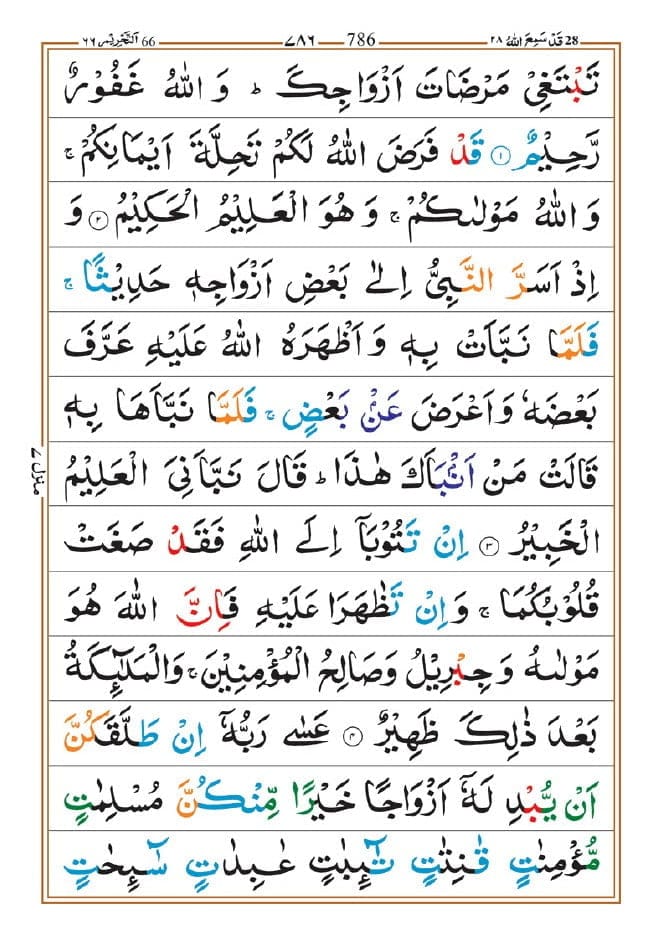 28 قَدْ سَمِعَ اللّٰهُ ٢٨ 786 ٧٨٦ 66 اَلتَّحْرِيْم ٦٦
تَبْتَغِیْ مَرْضَاتَ اَزْوَاجِكَ ؕ وَ اللّٰهُ غَفُوْرٌ
رَّحِیْمٌ ۝۱ قَدْ فَرَضَ اللّٰهُ لَكُمْ تَحِلَّةَ اَیْمَانِكُمْ ۚ
وَ اللّٰهُ مَوْلٰىكُمْ ۚ وَ هُوَ الْعَلِیْمُ الْحَكِیْمُ ۝۲ وَ
اِذْ اَسَرَّ النَّبِیُّ اِلٰی بَعْضِ اَزْوَاجِهٖ حَدِیْثًا ۚ
فَلَمَّا نَبَّاَتْ بِهٖ وَ اَظْهَرَهُ اللّٰهُ عَلَیْهِ عَرَّفَ
بَعْضَهٗ وَ اَعْرَضَ عَنْۢ بَعْضٍ ۚ فَلَمَّا نَبَّاَهَا بِهٖ
قَالَتْ مَنْ اَنْۢبَاَكَ هٰذَا ؕ قَالَ نَبَّاَنِیَ الْعَلِیْمُ
الْخَبِیْرُ ۝۳ اِنْ تَتُوْبَاۤ اِلَی اللّٰهِ فَقَدْ صَغَتْ
قُلُوْبُكُمَا ۚ وَ اِنْ تَظٰهَرَا عَلَیْهِ فَاِنَّ اللّٰهَ هُوَ
مَوْلٰىهُ وَ جِبْرِیْلُ وَ صَالِحُ الْمُؤْمِنِیْنَ ۚ وَ الْمَلٰٓىِٕكَةُ
بَعْدَ ذٰلِكَ ظَهِیْرٌ ۝۴ عَسٰی رَبُّهٗۤ اِنْ طَلَّقَكُنَّ
اَنْ یُّبْدِلَهٗۤ اَزْوَاجًا خَیْرًا مِّنْكُنَّ مُسْلِمٰتٍ
مُّؤْمِنٰتٍ قٰنِتٰتٍ تٰٓىِٕبٰتٍ عٰبِدٰتٍ سٰٓىِٕحٰتٍ
منزل ٧